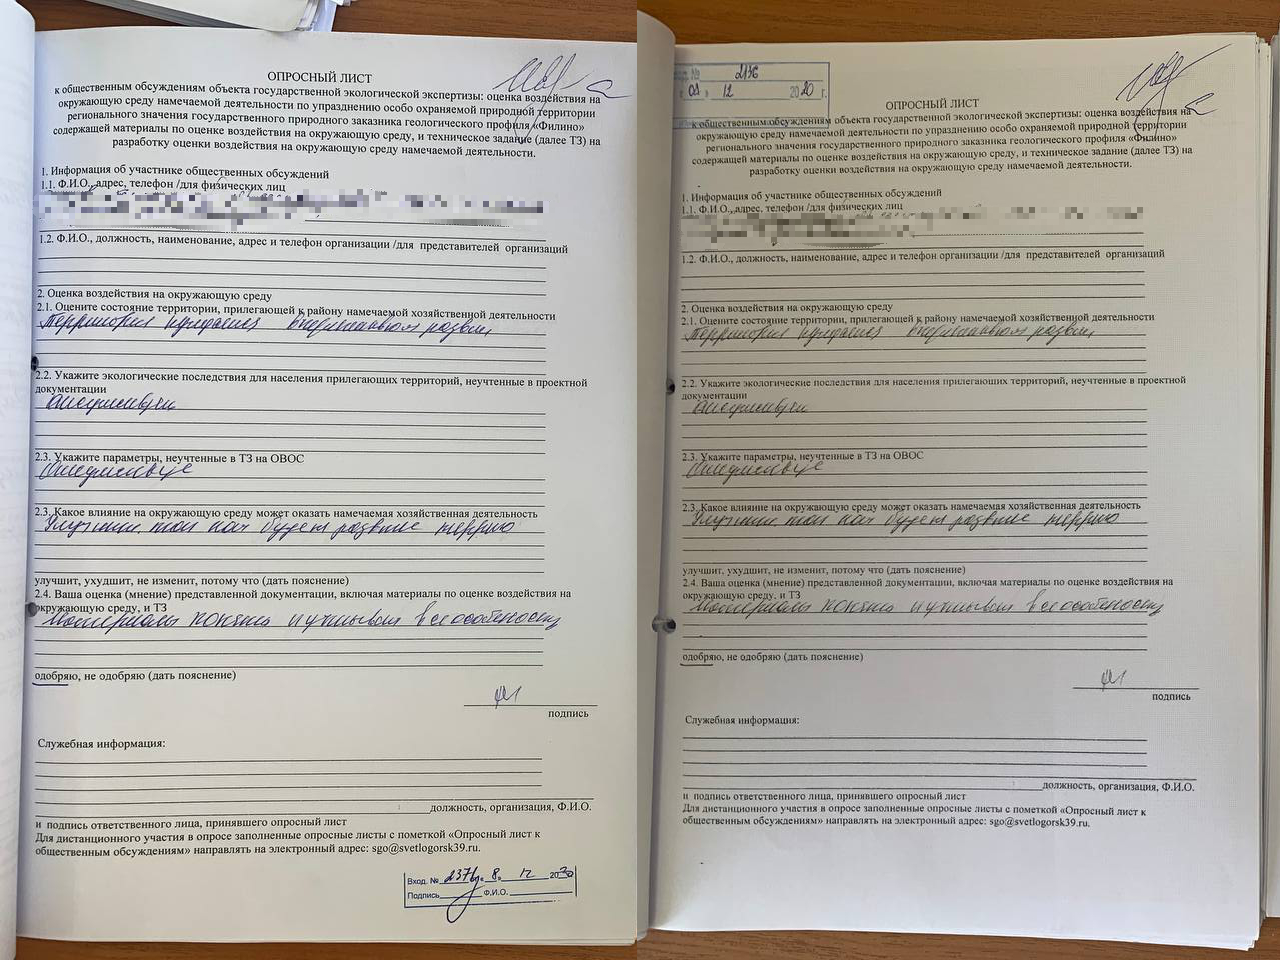 ОПРОСНЫЙ ЛИСТ
к общественным обсуждениям объекта государственной экологической экспертизы: оценка воздействия на
окружающую среду намечаемой деятельности по упразднению особо охраняемой природной территории
регионального значения государственного природного заказника геологического профиля «Филино»
содержащей материалы по оценке воздействия на окружающую среду, и техническое задание (далее ТЗ) на
разработку оценки воздействия на окружающую среду намечаемой деятельности.
1. Информация об участнике общественных обсуждений
1.1. Ф.И.О., адрес, телефон /для физических лиц
1.2. Ф.И.О., должность, наименование, адрес и телефон организации /для представителей организаций
2. Оценка воздействия на окружающую среду
2.1. Оцените состояние территории, прилегающей к району намечаемой хозяйственной деятельности
Территория нуждается в
2.2. Укажите экологические последствия для населения прилегающих территорий, неучтенные в проектной
документации
2.3. Укажите параметры, неучтенные в ТЗ на ОВОС
2.3. Какое влияние на окружающую среду может оказать намечаемая хозяйственная деятельность
так как будет
улучшит, ухудшит, не изменит, потому что (дать пояснение)
2.4. Ваша оценка (мнение) представленной документации, включая материалы по оценке воздействия на
окружающую среду, и ТЗ
Материалы все
одобряю, не одобряю (дать пояснение)
подпись
Служебная информация:
должность, организация, Ф.И.О.
и подпись ответственного лица, принявшего опросный лист
Для дистанционного участия в опросе заполненные опросные листы с пометкой «Опросный лист к
общественным обсуждениям» направлять на электронный адрес: sgo@svetlogorsk39.ru.
Вход. № 8. 12 20
Подпись Ф.И.О.
№ 2176
12 2020 г.
ОПРОСНЫЙ ЛИСТ
к общественным обсуждениям объекта государственной экологической экспертизы: оценка воздействия на
окружающую среду намечаемой деятельности по упразднению особо охраняемой природной территории
регионального значения государственного природного заказника геологического профиля «Филино»
содержащей материалы по оценке воздействия на окружающую среду, и техническое задание (далее ТЗ) на
разработку оценки воздействия на окружающую среду намечаемой деятельности.
1. Информация об участнике общественных обсуждений
1.1. Ф.И.О., адрес, телефон /для физических лиц
1.2. Ф.И.О., должность, наименование, адрес и телефон организации /для представителей организаций
2. Оценка воздействия на окружающую среду
2.1. Оцените состояние территории, прилегающей к району намечаемой хозяйственной деятельности
Территория нуждается в
2.2. Укажите экологические последствия для населения прилегающих территорий, неучтенные в проектной
документации
2.3. Укажите параметры, неучтенные в ТЗ на ОВОС
2.3. Какое влияние на окружающую среду может оказать намечаемая хозяйственная деятельность
так как будет
улучшит, ухудшит, не изменит, потому что (дать пояснение)
2.4. Ваша оценка (мнение) представленной документации, включая материалы по оценке воздействия на
окружающую среду, и ТЗ
Материалы все
одобряю, не одобряю (дать пояснение)
подпись
Служебная информация:
должность, организация, Ф.И.О.
и подпись ответственного лица, принявшего опросный лист
Для дистанционного участия в опросе заполненные опросные листы с пометкой «Опросный лист к
общественным обсуждениям» направлять на электронный адрес: sgo@svetlogorsk39.ru.